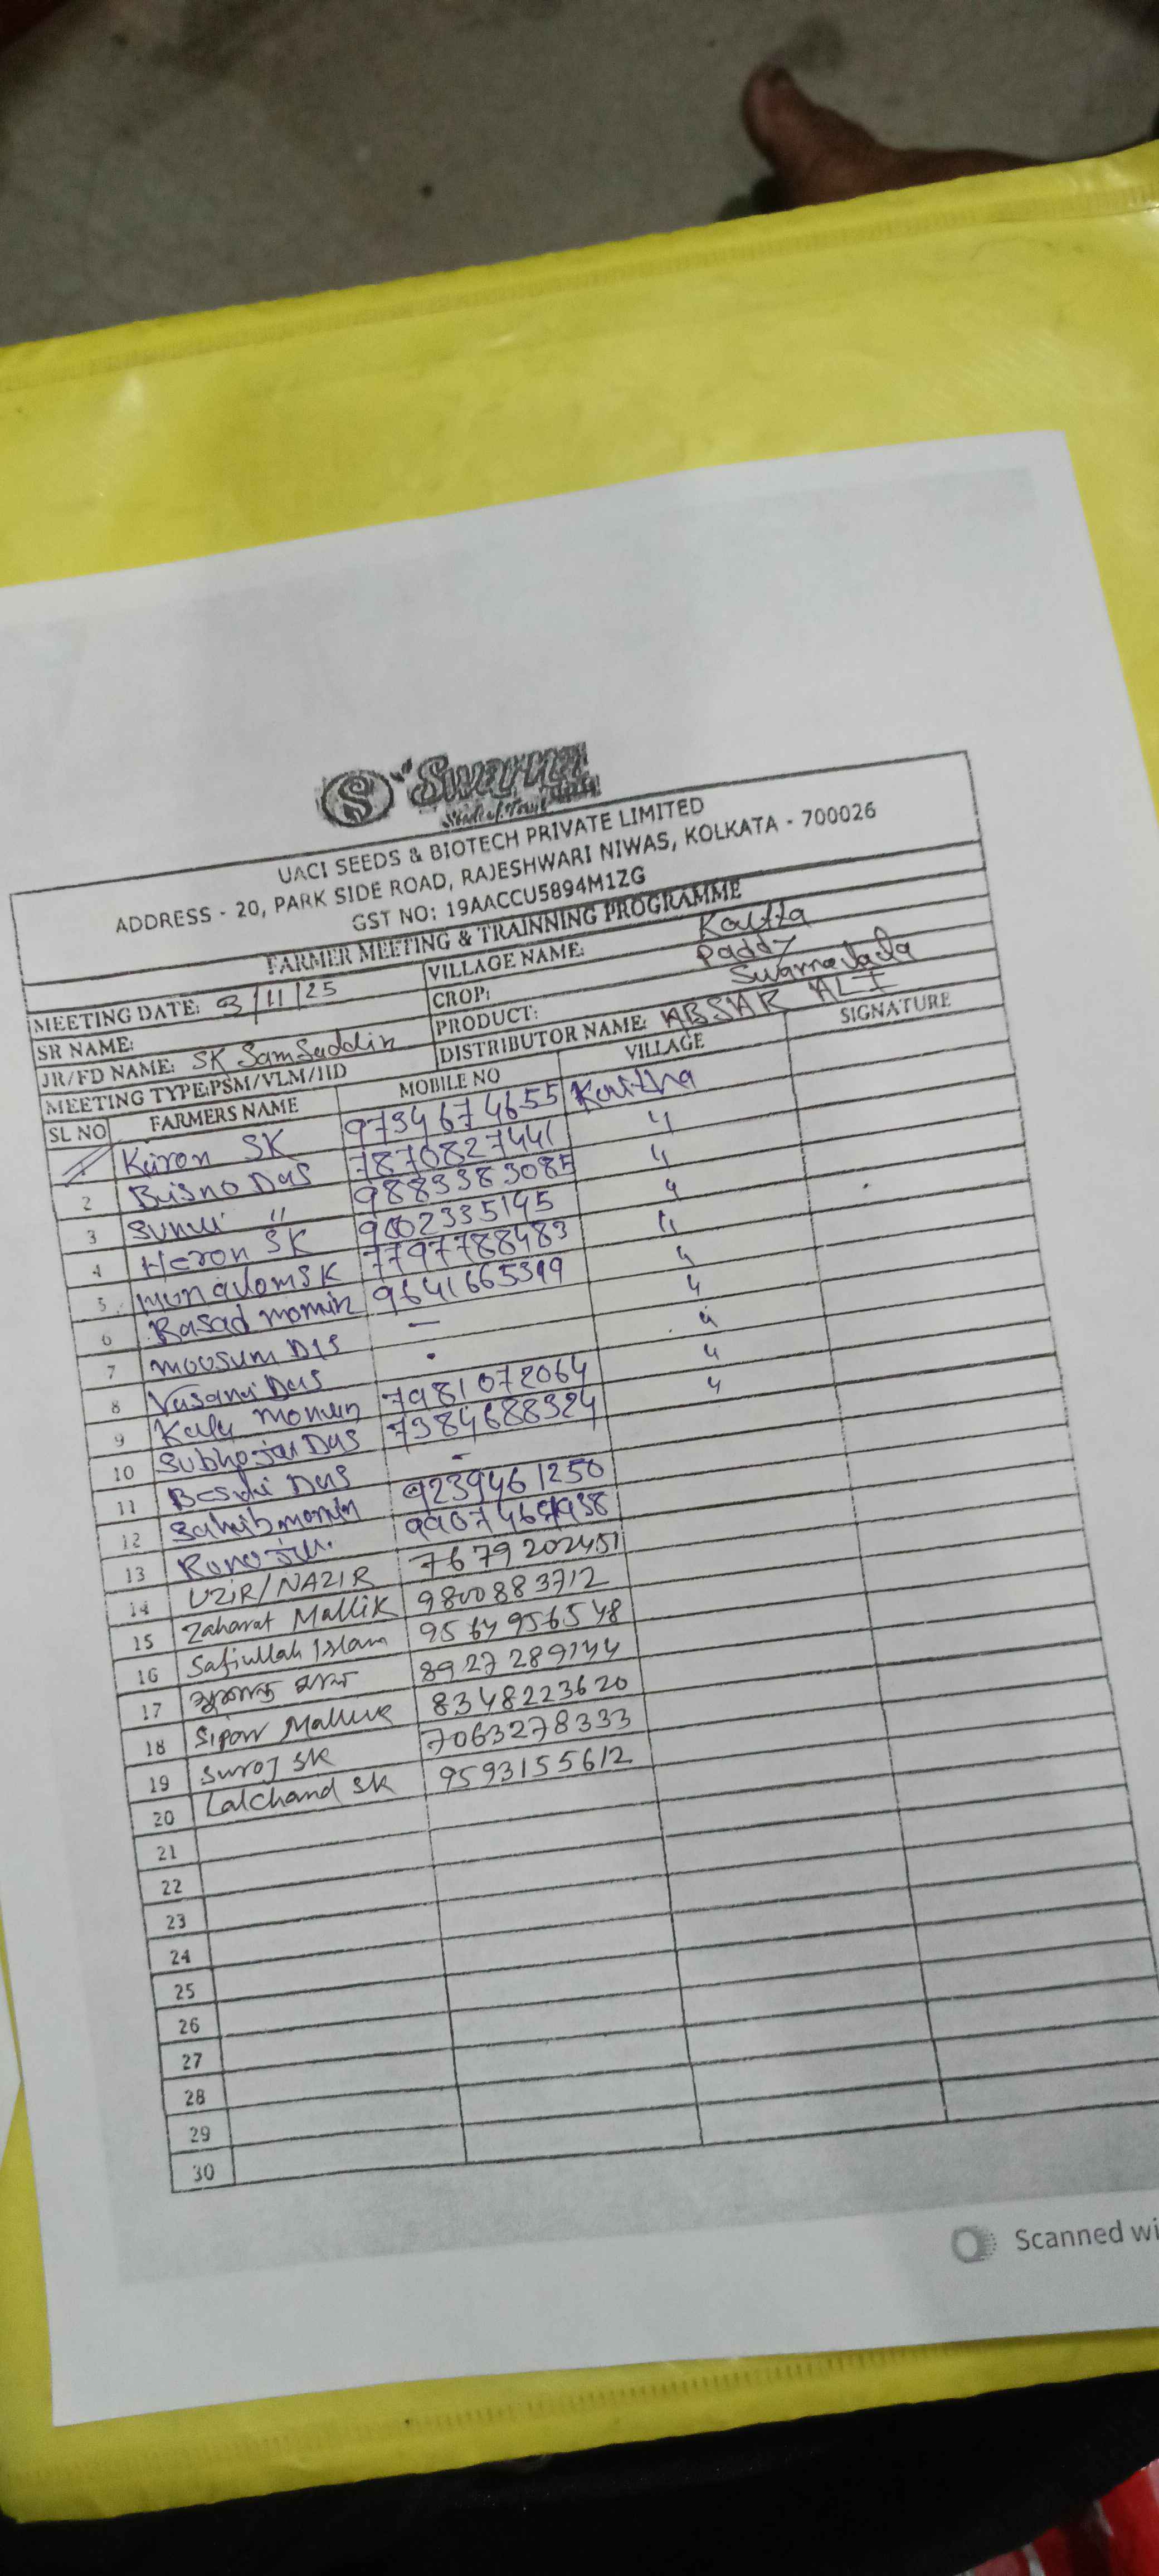 S Swarna
UACI SEEDS & BIOTECH PRIVATE LIMITED
ADDRESS - 20, PARK SIDE ROAD, RAJESHWARI NIWAS, KOLKATA - 700026
GST NO: 19AACCU5894M1ZG
FARMER MEETING & TRAINNING PROGRAMME
MEETING DATE: 3/11/25 VILLAGE NAME: Kaitha
SR NAME: CROP: Paddy
JR/FD NAME: SK Samsuddin PRODUCT: Swarna
MEETING TYPE:PSM/VLM/IID DISTRIBUTOR NAME: ABSAR ALI
SL NO FARMERS NAME MOBILE NO VILLAGE SIGNATURE
1 Kiron SK 9734674655 Kaitha
2 Bisno Das 7870827441 "
3 Sunui " 9883383085 "
4 Heron SK 9002335145 "
5 SK 7797788483 "
6 Rasad momin 9641665399 "
7 Moosum DAS — "
8 Das "
9 Kalu Momin 7981072064 "
10 Das 7384688324 "
11 Das -
12 Sahib momin 9239461250
13
14 UZIR/NAZIR 7679202451
15 Zaharat Mallik 9800883712
16 Safiullah Islam 9564956548
17 8927289144
18 Sipon Mallick 8348223620
19 Suroj SK 7063278333
20 Lalchand SK 9593155612
21
22
23
24
25
26
27
28
29
30
Scanned wi